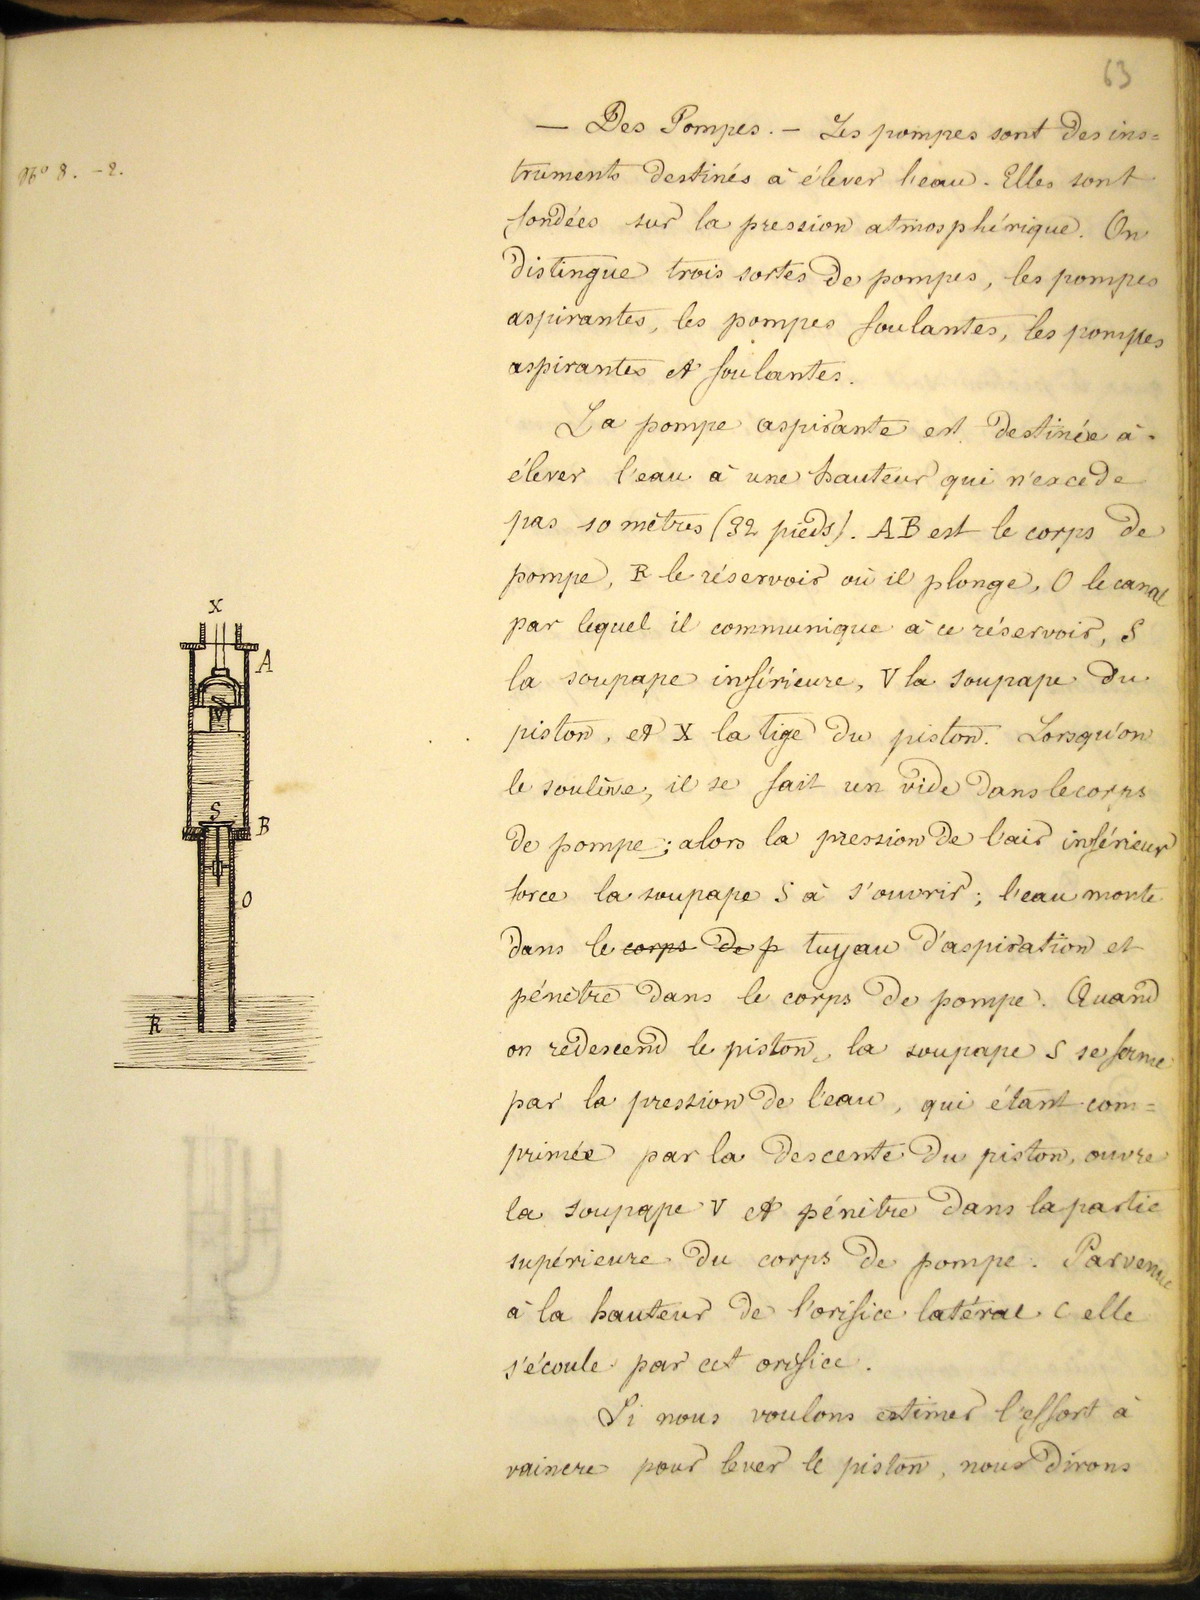 63
No 8. - 2.
— Des Pompes. — Les pompes sont des ins=
truments destinés à élever l'eau. Elles sont
fondées sur la pression atmosphérique. On
distingue trois sortes de pompes, les pompes
aspirantes, les pompes foulantes, les pompes
aspirantes et foulantes.
La pompe aspirante est destinée à
élever l'eau à une hauteur qui n'excède
pas 10 mètres (32 pieds). AB est le corps de
pompe, R le réservoir où il plonge, O le canal
par lequel il communique à ce réservoir, S
la soupape inférieure, V la soupape du
piston, et X la tige du piston. Lorsqu'on
le soulève, il se fait un vide dans le corps
de pompe; alors la pression de l'air inférieur
force la soupape S à s'ouvrir; l'eau monte
dans le corps de p tuyau d'aspiration et
pénètre dans le corps de pompe. Quand
on redescend le piston, la soupape S se ferme
par la pression de l'eau, qui étant com=
primée par la descente du piston, ouvre
la soupape V et pénètre dans la partie
supérieure du corps de pompe. Parvenue
à la hauteur de l'orifice latéral C elle
s'écoule par cet orifice.
Si nous voulons estimer l'effort à
vaincre pour lever le piston, nous dirons
X
A
V
S
B
O
R